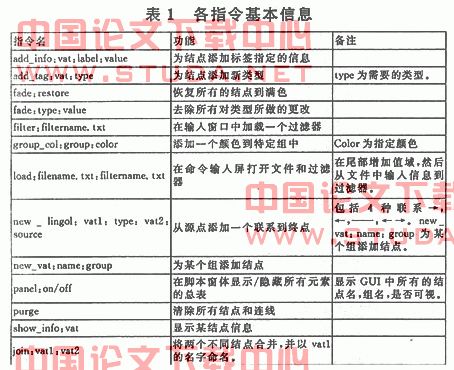 表 1 各指令基本信息
指令名 功能 备注
add_info;vat;label;value 为结点添加标签指定的信息
add_tag;vat;type 为结点添加新类型 type 为需要的类型。
fade;restore 恢复所有的结点到满色
fade;type;value 去除所有对类型所做的更改
filter;filtername.txt 在输入窗口中加载一个过滤器
group_col;group;color 添加一个颜色到特定组中 Color 为指定颜色
load;filename.txt;filtername.txt 在命令输入屏打开文件和过滤器 在尾部增加值域,然后从文件中输入信息到过滤器。
new_lingol;vat1;type;vat2;source 从源点添加一个联系到终点 包括 4 种联系→,←,——,←→。new_vat;name;group 为某个组添加结点。
new_vat;name;group 为某个组添加结点
panel;on/off 在脚本窗体显示/隐藏所有元素的总表 显示 GUI 中所有的结点名,组名,是否可视。
purge 清除所有结点和连线
show_info;vat 显示某结点信息
join;vat1;vat2 将两个不同结点合并,并以 vat1 的名字命名。
中国论文下载中心
WWW.STUDA.NET
中国论文下载中心
WWW.STUDA
中国论文下载中心